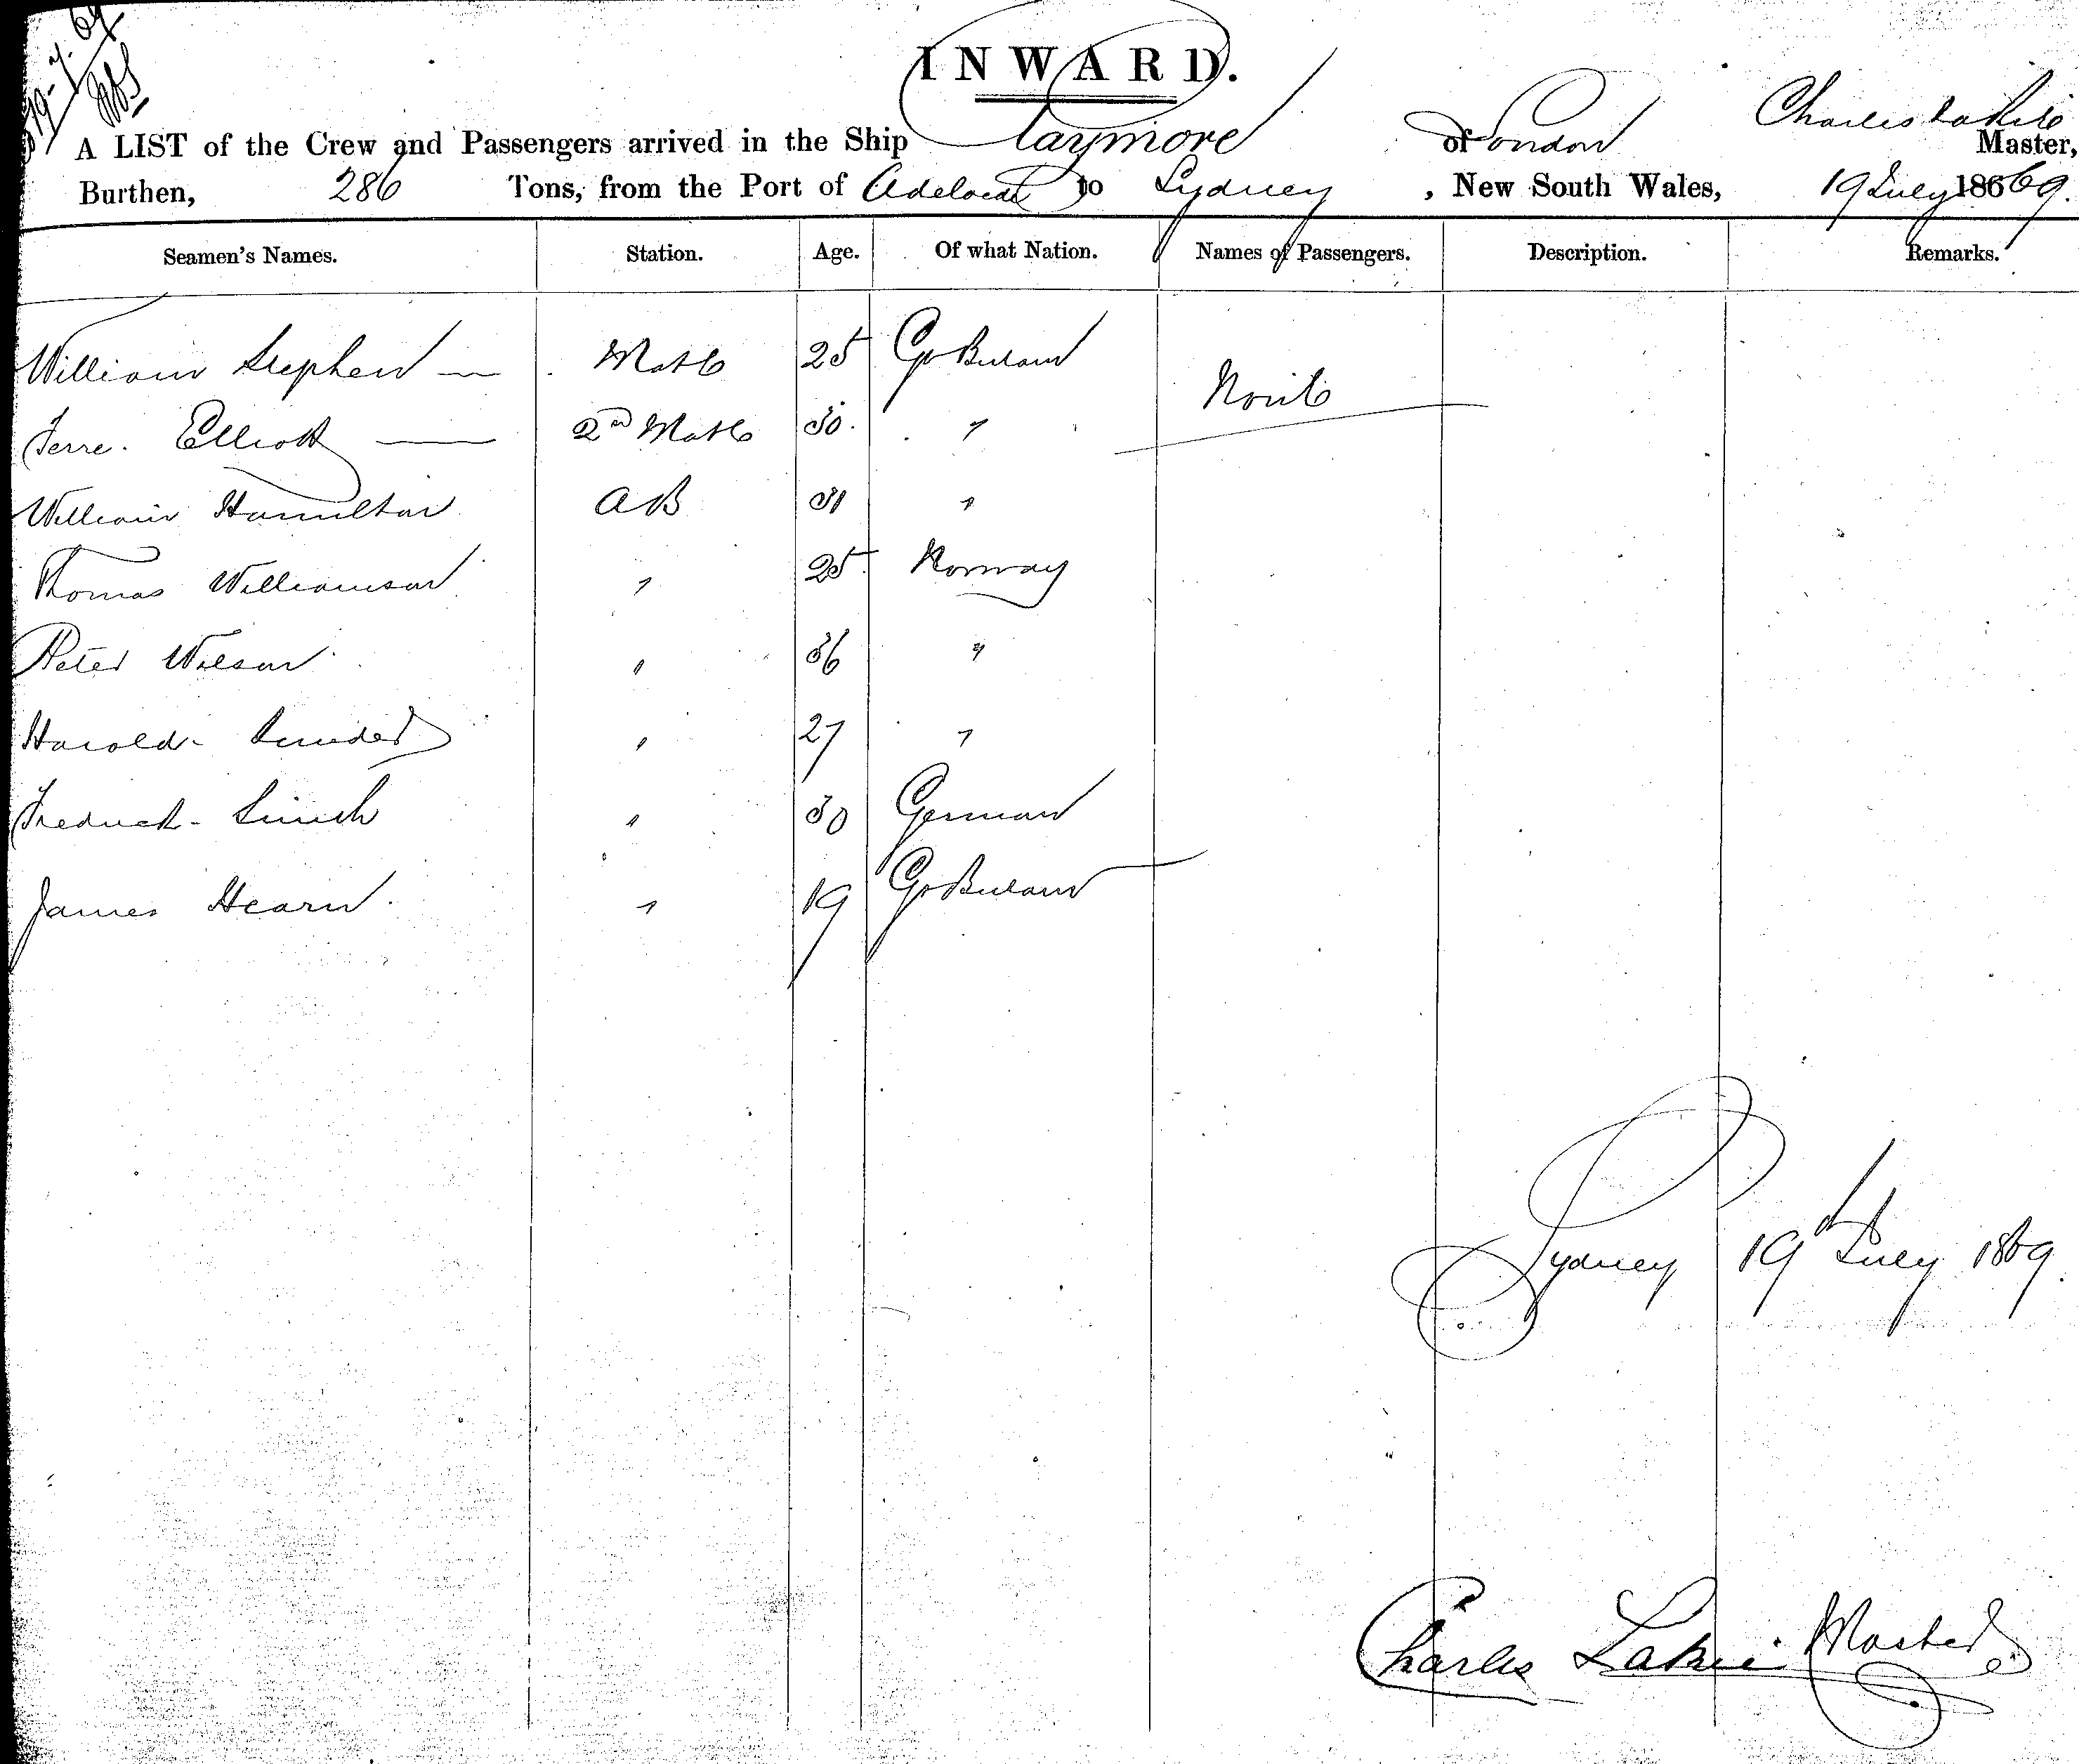 19-7-69
INWARD.
A LIST of the Crew and Passengers arrived in the Ship Claymore of London Charles Lakie Master,
Burthen, 286 Tons, from the Port of Adelaide to Sydney, New South Wales, 19 July 18669.
Seamen's Names. Station. Age. Of what Nation. Names of Passengers. Description. Remarks.
William Stephen — Mate 25 Gt Britain
None
Elliott — 2nd Mate 30. "
William Hamilton AB 31 "
Thomas Williamson " 25 Norway
Peter Wilson " 36 "
Harold " 27 "
Fredrick - " 30 German
James Hearn. " 19 Gt Britain
Sydney 19 July 1869.
Charles Lakie Master